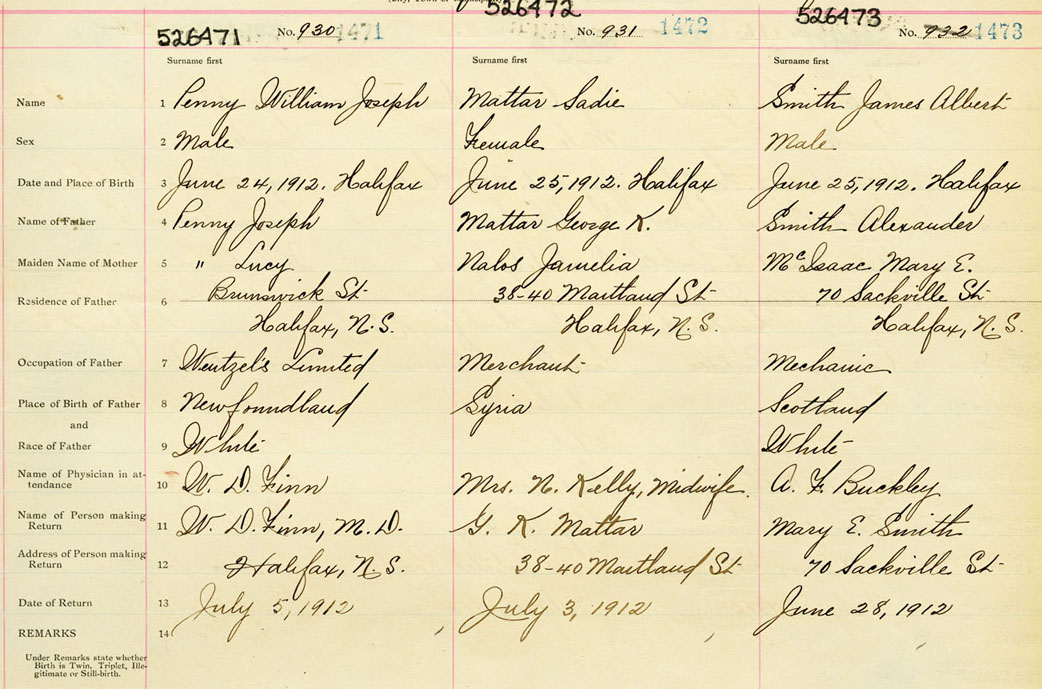 526471 No. 930 1471 526472 No. 931 1472 526473 No. 932 1473
Surname first Surname first Surname first
Name 1 Penny William Joseph Mattar Sadie Smith James Albert
Sex 2 Male Female Male
Date and Place of Birth 3 June 24, 1912. Halifax June 25, 1912. Halifax June 25, 1912. Halifax
Name of Father 4 Penny Joseph Mattar George K. Smith Alexander
Maiden Name of Mother 5 " Lucy Nalos Jamelia McIsaac Mary E.
Residence of Father 6 Brunswick St 38-40 Maitland St 70 Sackville St
Halifax, N.S. Halifax, N.S. Halifax, N.S.
Occupation of Father 7 Wentzel's Limited Merchant Mechanic
Place of Birth of Father 8 Newfoundland Syria Scotland
and
Race of Father 9 White White
Name of Physician in at-
tendance 10 W. D. Finn Mrs. N. Kelly, Midwife. A. F. Buckley
Name of Person making
Return 11 W. D. Finn, M.D. G. K. Mattar Mary E. Smith
Address of Person making
Return 12 Halifax, N.S. 38-40 Maitland St 70 Sackville St
Date of Return 13 July 5, 1912 July 3, 1912 June 28, 1912
REMARKS 14
Under Remarks state whether
Birth is Twin, Triplet, Ille-
gitimate or Still-birth.